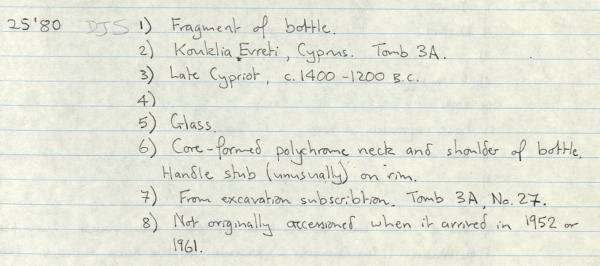 25'80 DJS 1) Fragment of bottle.
2) Kouklia, Evreti, Cyprus. Tomb 3A.
3) Late Cypriot, c. 1400 - 1200 B.C.
4)
5) Glass.
6) Core-formed polychrome neck and shoulder of bottle.
Handle stub (unusually) on rim.
7) From excavation subscribtion. Tomb 3A, No. 27.
8) Not originally accessioned when it arrived in 1952 or
1961.